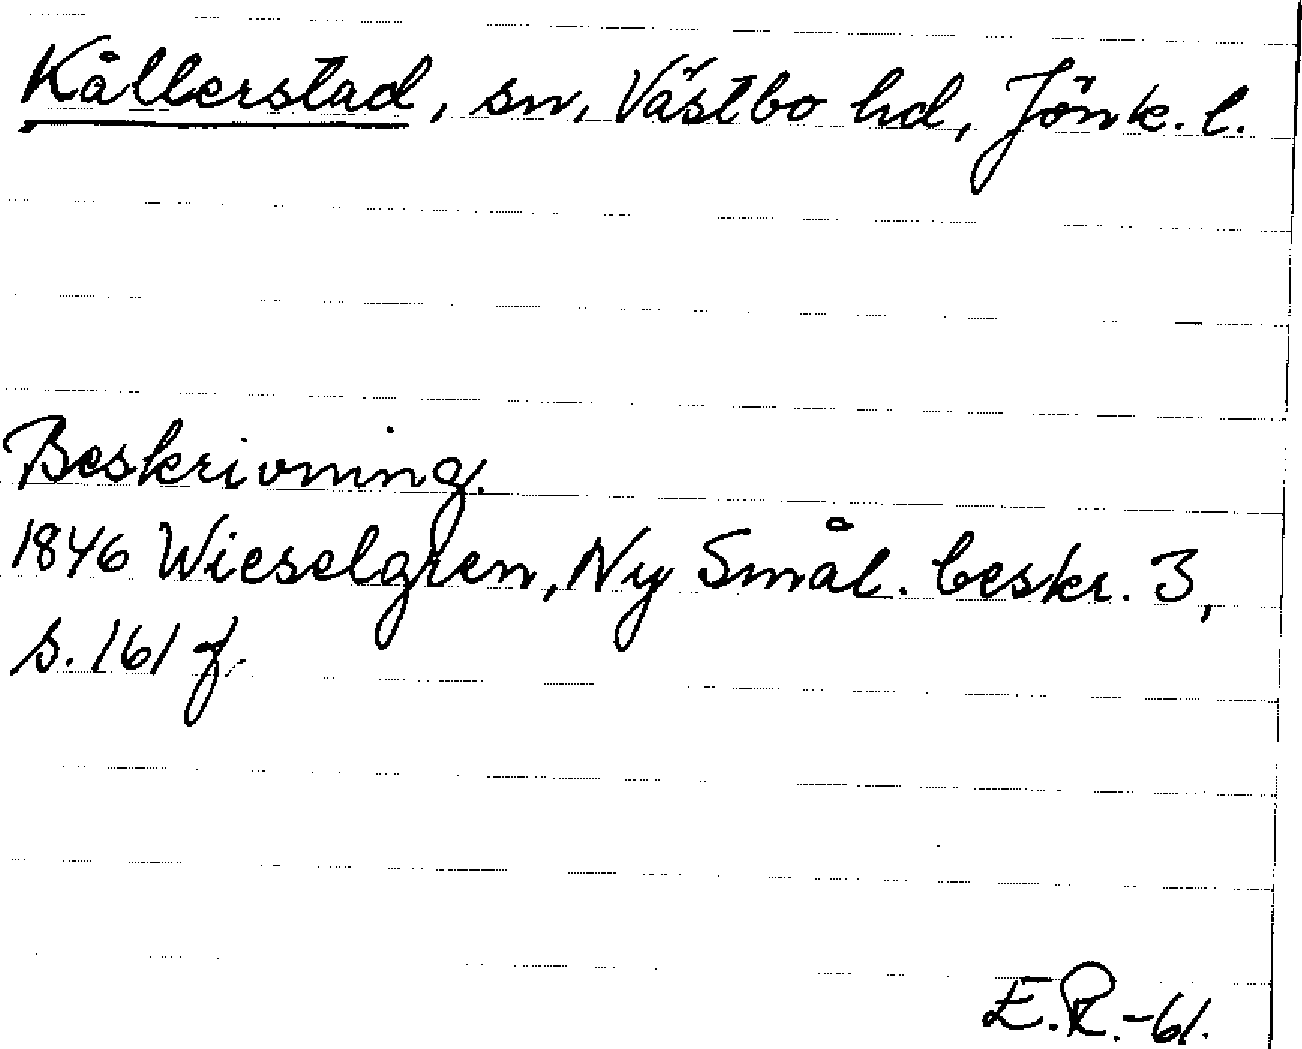 Kållerstad, sn, Västbo hd, Jönk. l.
Beskrivning.
1846 Wieselgren, Ny Smål. beskr. 3,
s. 161 f.
E.R.-61.